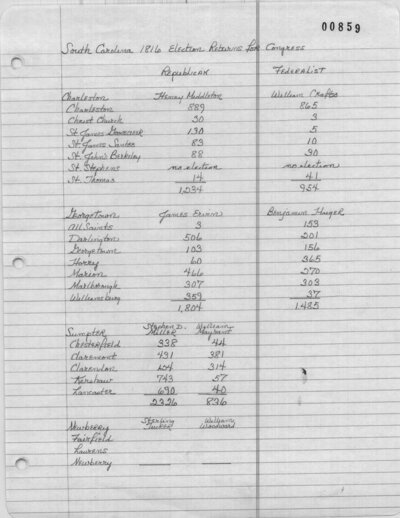 00859
South Carolina 1816 Election Returns for Congress
Republican Federalist
Charleston Henry Middleton William Crafts
Charleston 889 865
Christ Church 30 3
St James Goosecreek 130 5
St. James Santee 83 10
St. John's Berkeley 88 30
St. Stephens no election no election
St. Thomas 14 41
1,234 954
Georgetown James Ervin Benjamin Huger
All Saints 3 153
Darlington 506 201
Georgetown 103 156
Horry 60 365
Marion 466 270
Marlborough 307 303
Williamsburg 359 37
1,804 1,485
Sumpter Stephen D. Miller William Mayrant
Chesterfield 338 44
Claremont 431 381
Clarendon 314
Kershaw 743 57
Lancaster 690 40
2326 836
Newberry Sterling Tucker William Woodward
Fairfield
Laurens
Newberry